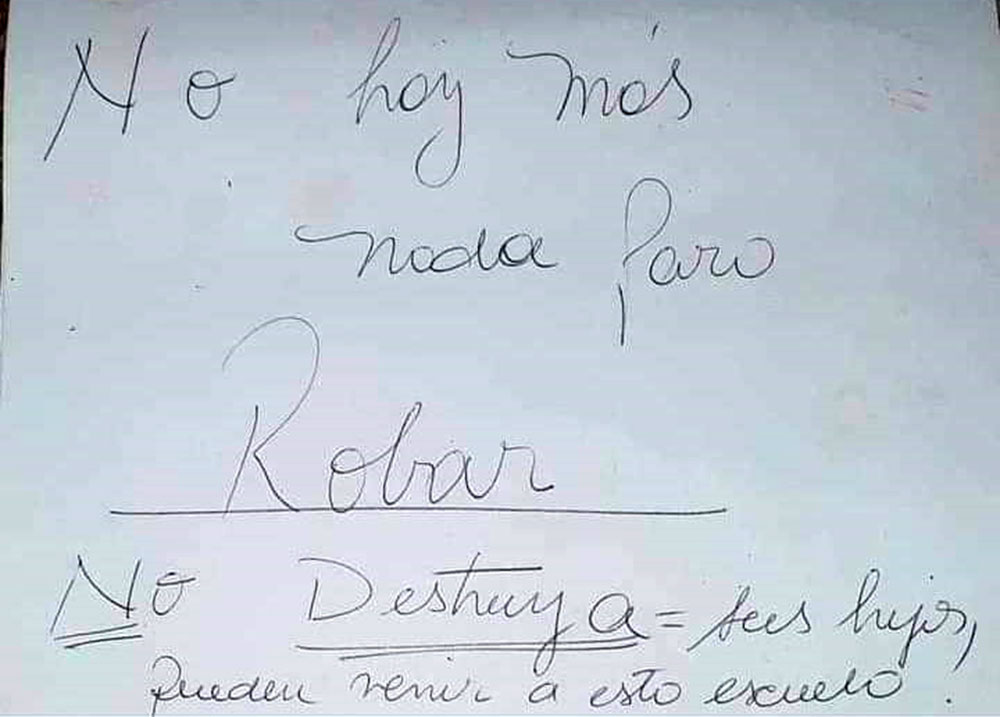 No hay más
nada para
Robar
No Destruya = sus hijos,
pueden venir a esta escuela.